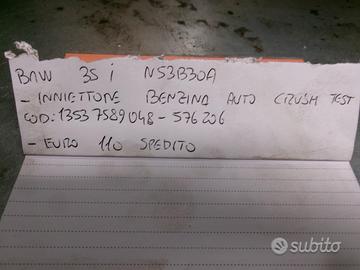 BMW 35 i N53B30A
- INNIETTORE BENZINA AUTO CRUSH TEST
COD: 13537589048 - 576206
- EURO 110 SPEDITO
subito